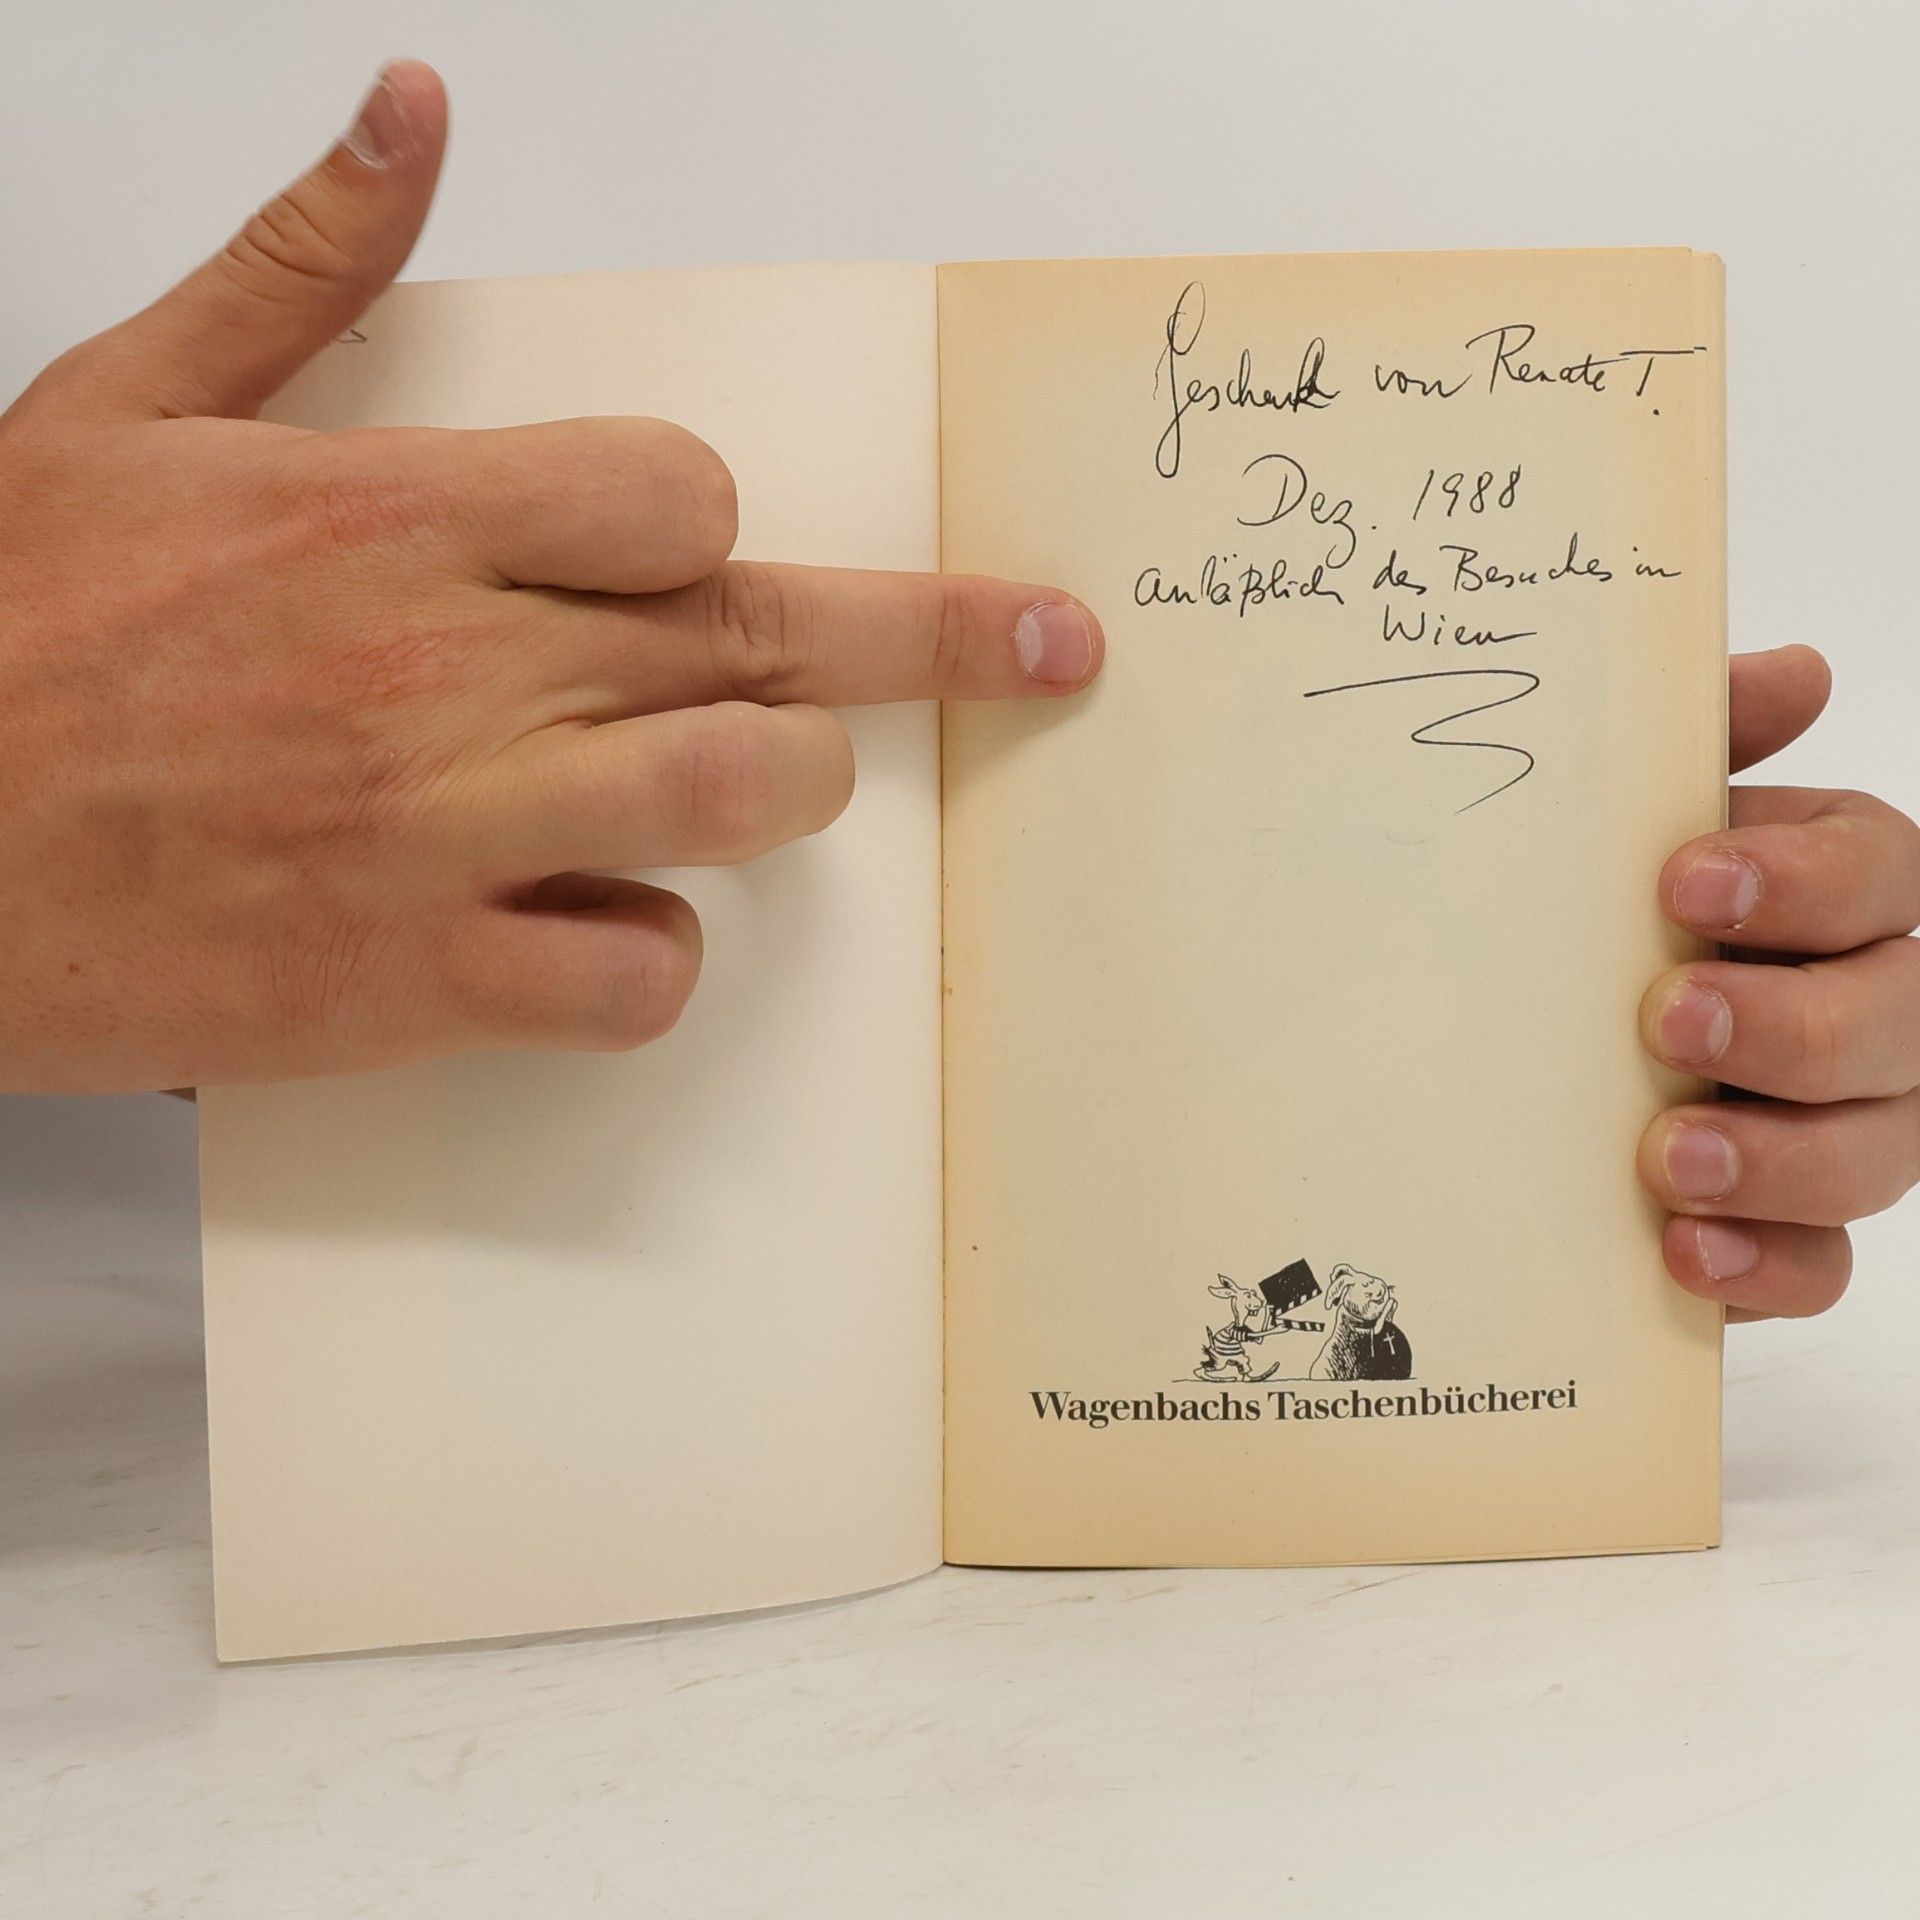 Geschenk von Renate T.
Dez. 1988
anläßlich des Besuches in
Wien
Wagenbachs Taschenbücherei